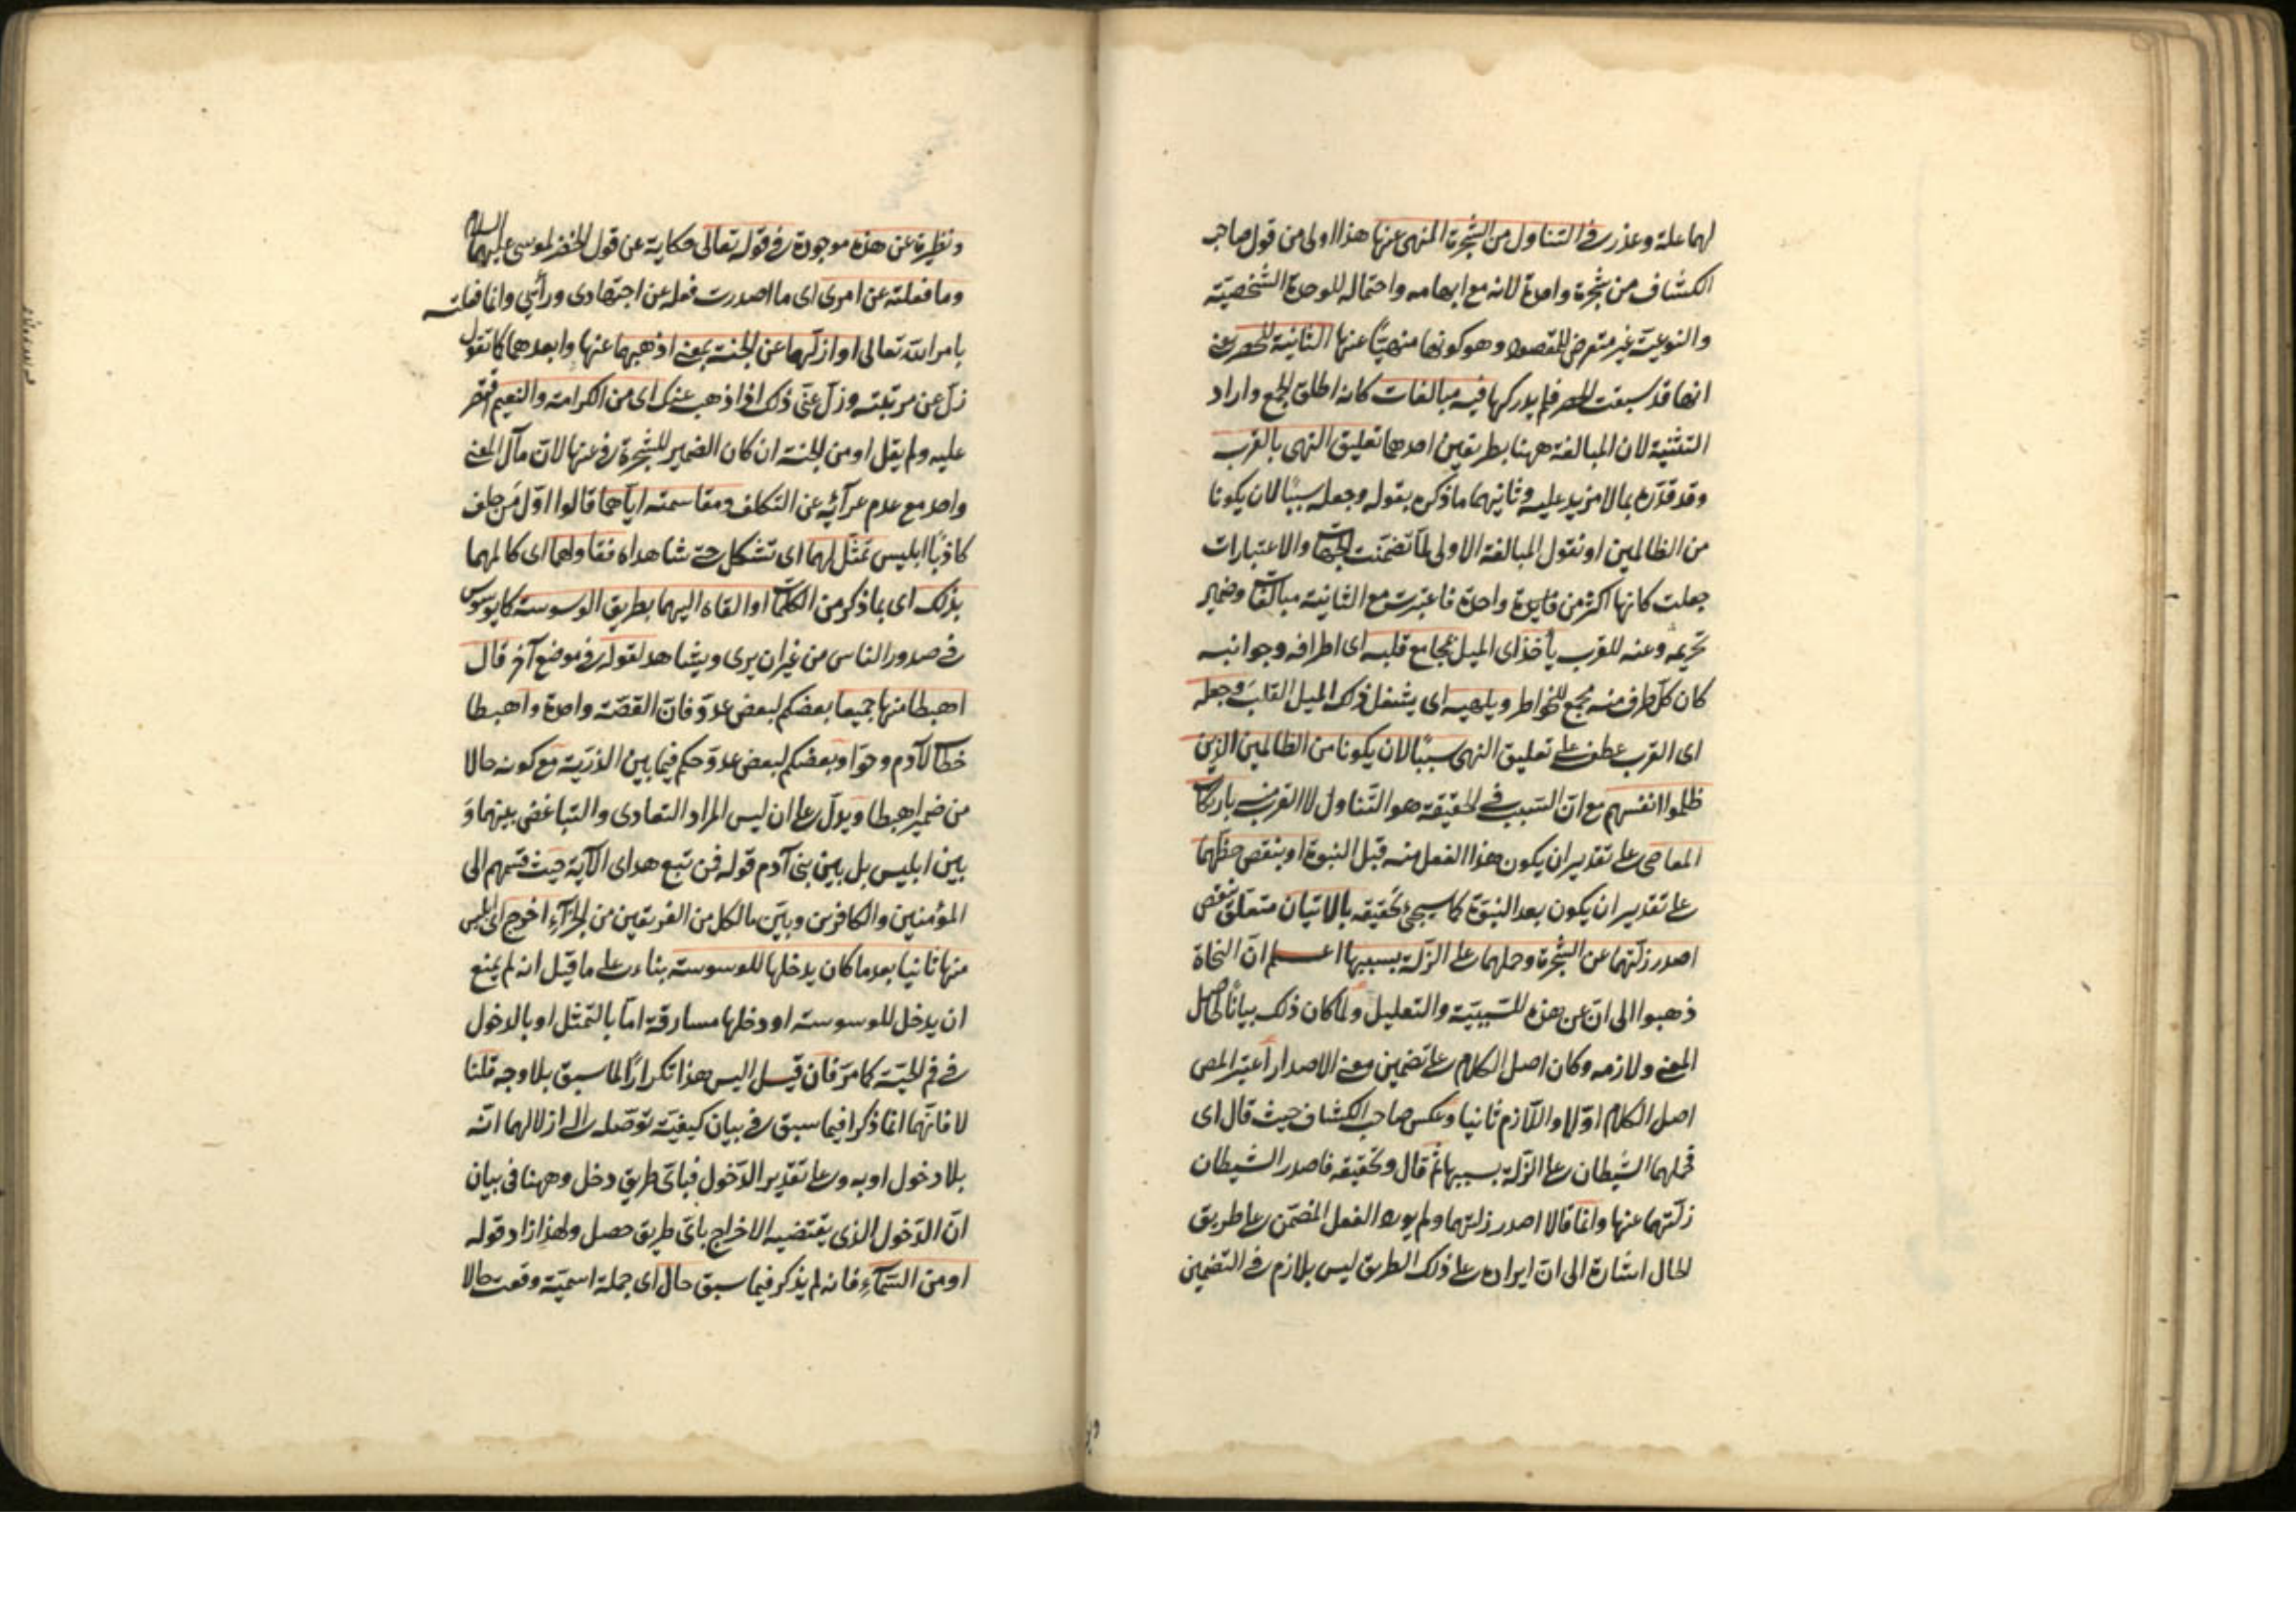 لهما علة وعذر في التناول من الشجرة المنهى عنها هذا اولى من قول صاحب
الكشاف من شجرة واحدة لانه مع ابهامه واحتماله للوحدة الشخصية
والنوعية غير متعرض للمقصود وهو كونها منهيّا عنها الثانية للحصر يعنى
انها قد سبقت للحصر فلم يدركها فيه مبالغات كانه اطلق الجمع واراد
التثنية لان المبالغة ههنا بطريقين احدهما تعليق النهى بالقرب
وقد قدّره بما لا مزيد عليه وثانيهما ما ذكره بقوله وجعله سببًا لان يكونا
من الظالمين او نقول المبالغة الاولى لما تضمّنت الجهات والاعتبارات
جعلت كانها اكثر من فايدة واحدة فاعتبرت مع الثانية مبالغات وضمير
تحريمه وعنه للقرب يأخذ اى الميل بمجامع قلبه اى اطرافه وجوانبه
كان كلّ طرف منه مجمع للخواطر ويلهيه اى يشغل ذلك الميل القلب وجعله
اى القرب عطف على تعليق النهى سببًا لان يكونا من الظالمين الذين
ظلموا انفسهم مع انّ السّبب في الحقيقة هو التّناول لا القرب منه بارتكاب
المعاصى على تقدير ان يكون هذا الفعل منه قبل النبوة او بنقص حظّهما
على تقدير ان يكون بعد النبوّة كما سيجئ تحقيقه بالاتيان متعلّق بنقص
اصدر زلّتهما عن الشجرة وحملهما على الزّلة بسببها اعلم انّ النحاة
ذهبوا الى انّ عن هذه للسّببيّة والتعليل ولمّا كان ذلك بيانًا لحاصل
المعنى ولازمه وكان اصل الكلام على تضمين معنى الاصدار اعتبر المص
اصل الكلام اوّلا واللّازم ثانيا وعكس صاحب الكشاف حيث قال اى
فحملهما الشيطان على الزّلة بسببها ثمّ قال وتحقيقه فاصدر الشيطان
زلّتهما عنها وانما قالا اصدر زلتهما ولم يورد الفعل المضمّن على طريق
الحال اشارة الى انّ ايراده على ذلك الطريق ليس بلازم في التّضمين
ونظيرة عن هذه موجودة في قوله تعالى حكاية عن قول الخضر لموسى عليهما السلام
وما فعلته عن امرى اى ما اصدرت فعله عن اجتهادى ورأيى وانما فعلته
بامر الله تعالى او ازلّهما عن الجنة بمعنى اذهبهما عنها وابعدهما كما تقول
زلّ عن مرتبته وزلّ عنّى ذلك اذا ذهب عنك اى من الكرامة والنعيم اقتصر
عليه ولم يقل او من الجنة ان كان الضمير للشّجرة في عنها لانّ مآل المعنى
واحد مع عدم عرائه عن التكلف ومقاسمته ايّاهما قالوا اوّل من حلف
كاذبًا ابليس تمثّل لهما اى تشكل حتى شاهداه فقاولهما اى كالمهما
بذلك اى بما ذكر من الكلمات او القاه اليهما بطريق الوسوسة كما يوسوس
في صدور الناس من غير ان يرى ويشاهد لقوله في موضع آخر قال
اهبطا منها جميعا بعضكم لبعض عدوّ فانّ القصّة واحدة واهبطا
خطاب لآدم وحوّا وبعضكم لبعض عدوّ حكم فيما بين الذرّية مع كونه حالا
من ضمير اهبطا ويدلّ على ان ليس المراد التعادى والتباغض بينهما و
بين ابليس بل بين بنى آدم قوله فمن تبع هداى الآية حيث قسّمهم الى
المؤمنين والكافرين وبيّن ما لكل من الفريقين من الجزآء اخرج اى ابليس
منها ثانيا بعد ما كان يدخلها للوسوسة بناء على ما قيل انه لم يمنع
ان يدخل للوسوسة او دخلها مسارقة امّا بالتّمثل او بالدخول
في فم الحيّة كما مرّ فان قيل اليس هذا تكرارًا لما سبق بلا وجه قلنا
لا فانّهما انما ذكرا فيما سبق في بيان كيفيّة توصّله الى ازلالهما انّه
بلا دخول او به وعلى تقدير الدّخول فباىّ طريق دخل وههنا في بيان
انّ الدّخول الذى يقتضيه الاخراج باىّ طريق حصل ولهذا زاد قوله
او من السّمآء فانه لم يذكر فيما سبق حال اى جملة اسميّة وقعت حالا